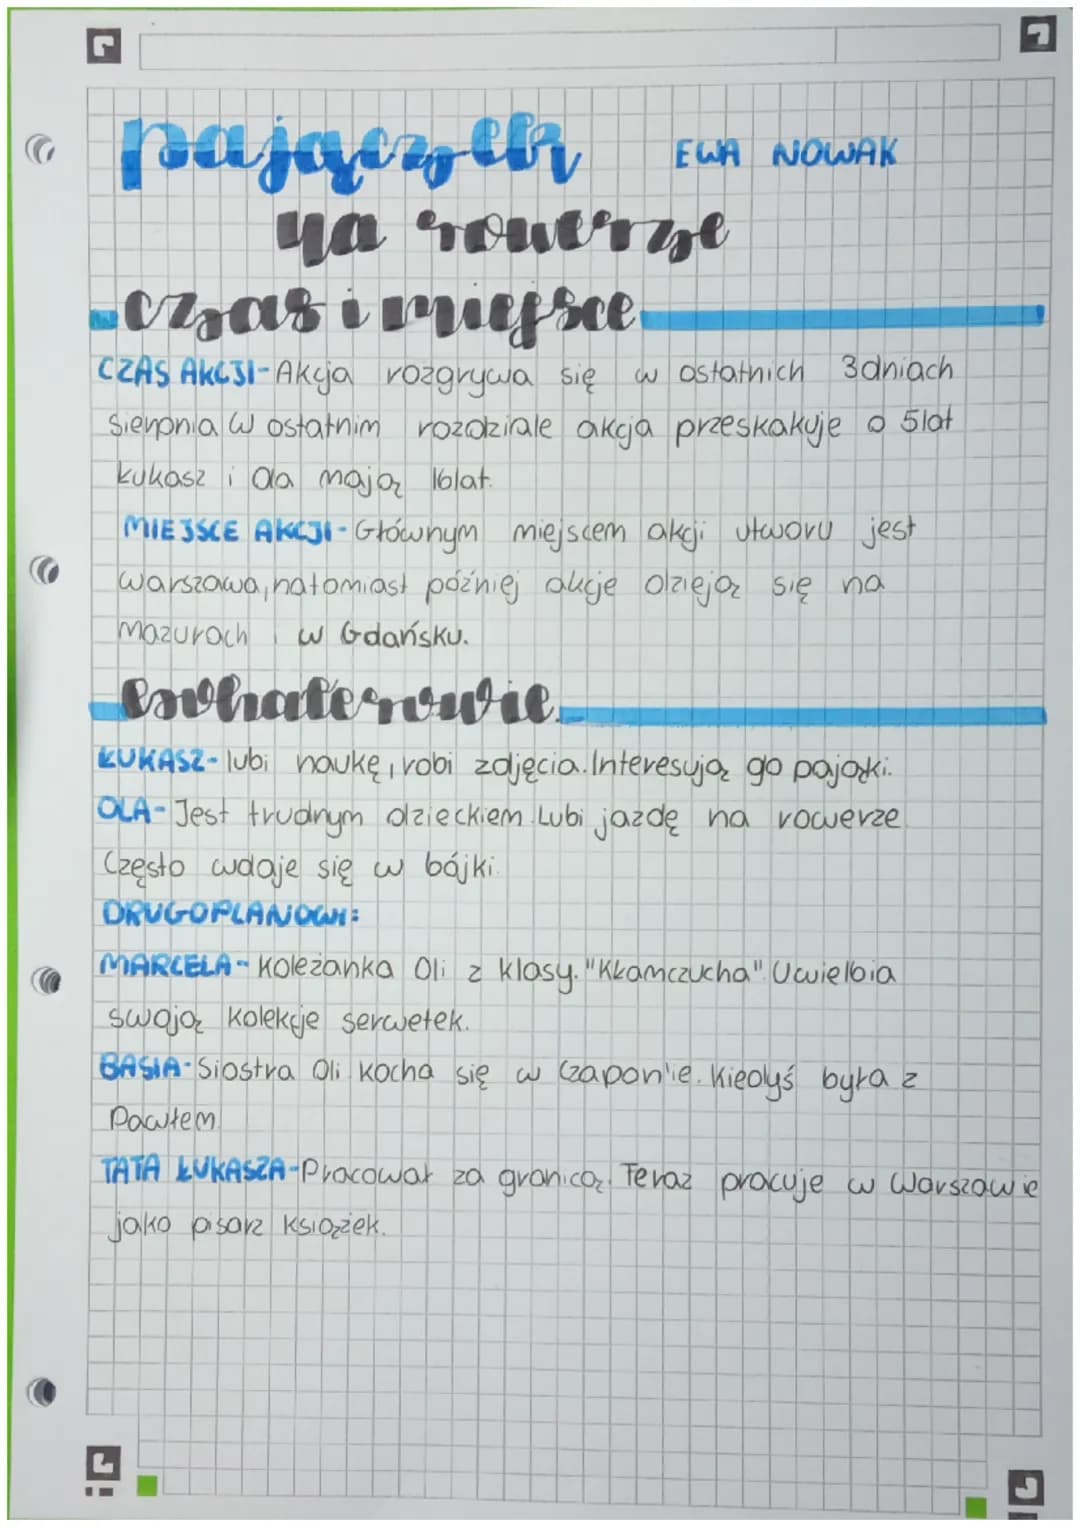 pajączek EWA NOWAK
na rowerze
czas i miejsce
CZAS AKCJI-Akcja rozgrywa się w ostatnich 3dniach
sierpnia W ostatnim rozdziale akcja przeskakuje o 5lat
Łukasz i Ola mają 16lat.
MIEJSCE AKCJI-Głównym miejscem akcji utworu jest
Warszawa, natomiast później akcje dzieją się na
Mazurach i w Gdańsku.
bohaterowie
ŁUKASZ-lubi naukę, robi zdjęcia. Interesują go pająki.
OLA-Jest trudnym dzieckiem Lubi jazdę na rowerze
Często wdaje się w bójki
DRUGOPLANOWI:
MARCELA-Koleżanka Oli z klasy. "Kłamczucha" Uwielbia
swoją kolekcje serwetek.
BASIA-Siostra Oli kocha się w Czapon'ie. Kiedyś była z
Pawłem
TATA ŁUKASZA-Pracował za granicą. Teraz pracuje w Warszawie
jako pisarz książek.